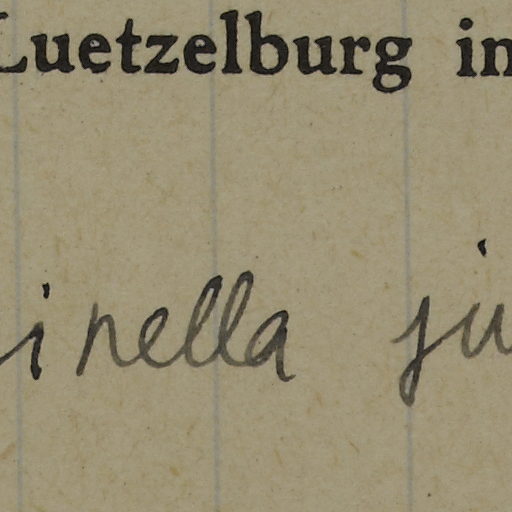 Luetzelburg in
inella ju